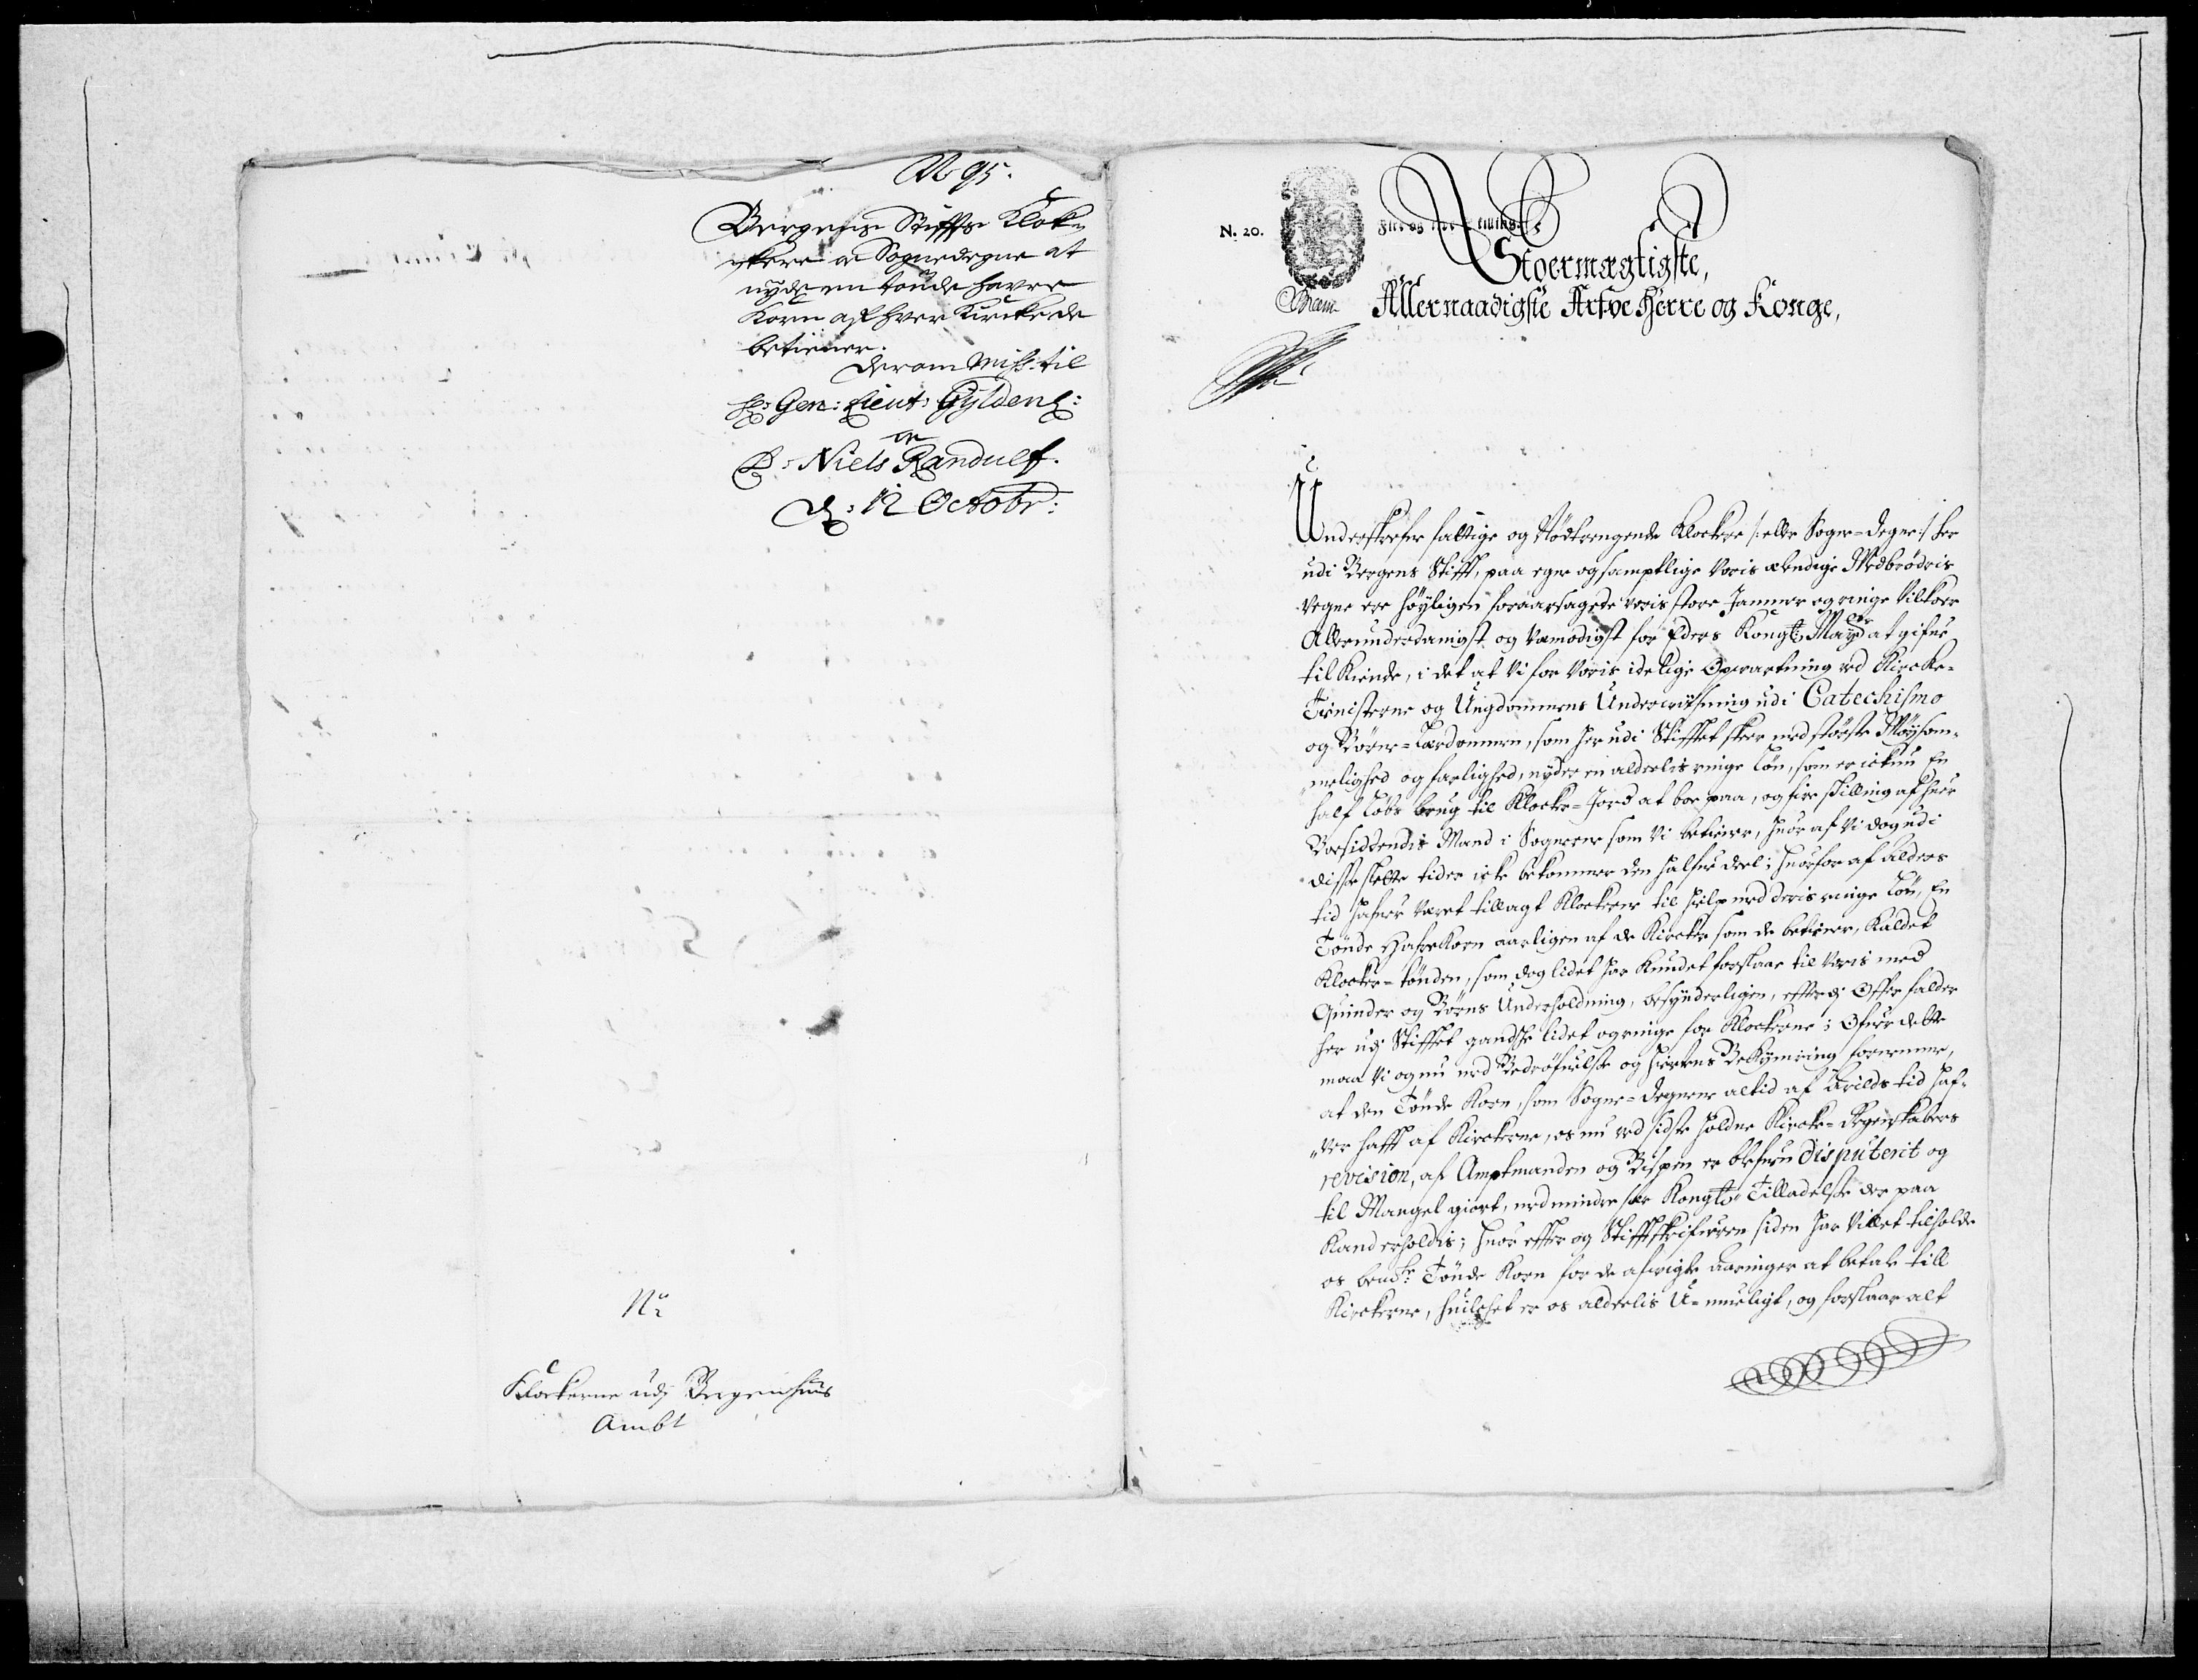 No 95.
Bergens Stiffts Klok-
kere oc Sognedegne at
nyde en tonde Havre
Korn af hver Kircke de
betiener.
derom Miss: til
Hr: Gen: Lieut: Gyldenl:
oc
D: Niels Randulf.
d: 12 Octobr:
No
Klockerne udj Bergenhuus
Ambt
N. 20.
Stoermægtigste,
Allernaadigste Arfve Herre og Konge,
Underskrefne fattige og Nødtrengende Klockere /: eller Sogne-Degne :/ her
udi Bergens Stifft, paa egne og samptlige Voris elendige Medbrødris
Vegne ere høyligen foraarsagede voris store Jammer og ringe Vilkoer
Allerunderdanigst og Vemodigst for Eders Kongl: Mayt at gifve
til Kiende, i det at Vi for Voris idelige Opvartning ved Kircke-
Tienisterne og Ungdommens Underviisning udi Catechismo
og Børne-Lærdommen, som her udi Stifftet skeer med største Møysom-
melighed og farlighed, nyder en alderlis ringe Løn, som er ickun En
half Løbs brug til Klocke-Jord at boe paa, og fire skilling af huer
Boesiddendis Mand i Sognene som Vi betiene, huoraf Vi dog udi
disse slette tider icke bekommer den halfve deel; huorfor af alders
tid hafver Veret tillagt Klockerne til hielp med deris ringe Løn, En
Tønde Hafre Korn aarligen af de Kircker som de betiener, Kaldet
Klocker-tønden, som dog lidet har Kundet forslaae til Voris med
Quinder og Børns Underholdning, besynderligen, efterdj Offer falder
her udj Stifftet gandske lidet og ringe for Klockerne; Ofver dette
maa Vi og nu med Bedrøfvelse og Hiertens Bekymring fornemme,
at den Tønde Korn, som Sogne-Degnene altid af Arilds tid haf-
ver hafft af Kirckerne, os nu ved sidste holdne Kircke-Regenskabers
revision, af Amptmanden og Bispen er blefven disputerit og
til Mangel giort, med mindre Kongl: Tilladelse der paa
Kand erholdis; huor effter og Stifftskrifveren siden har Villet tilholde
os bemte: Tønde Korn for de afvigte aaringer at betale till
Kirckerne, huilchet er os alderlis U-mueligt, og forslaar alt